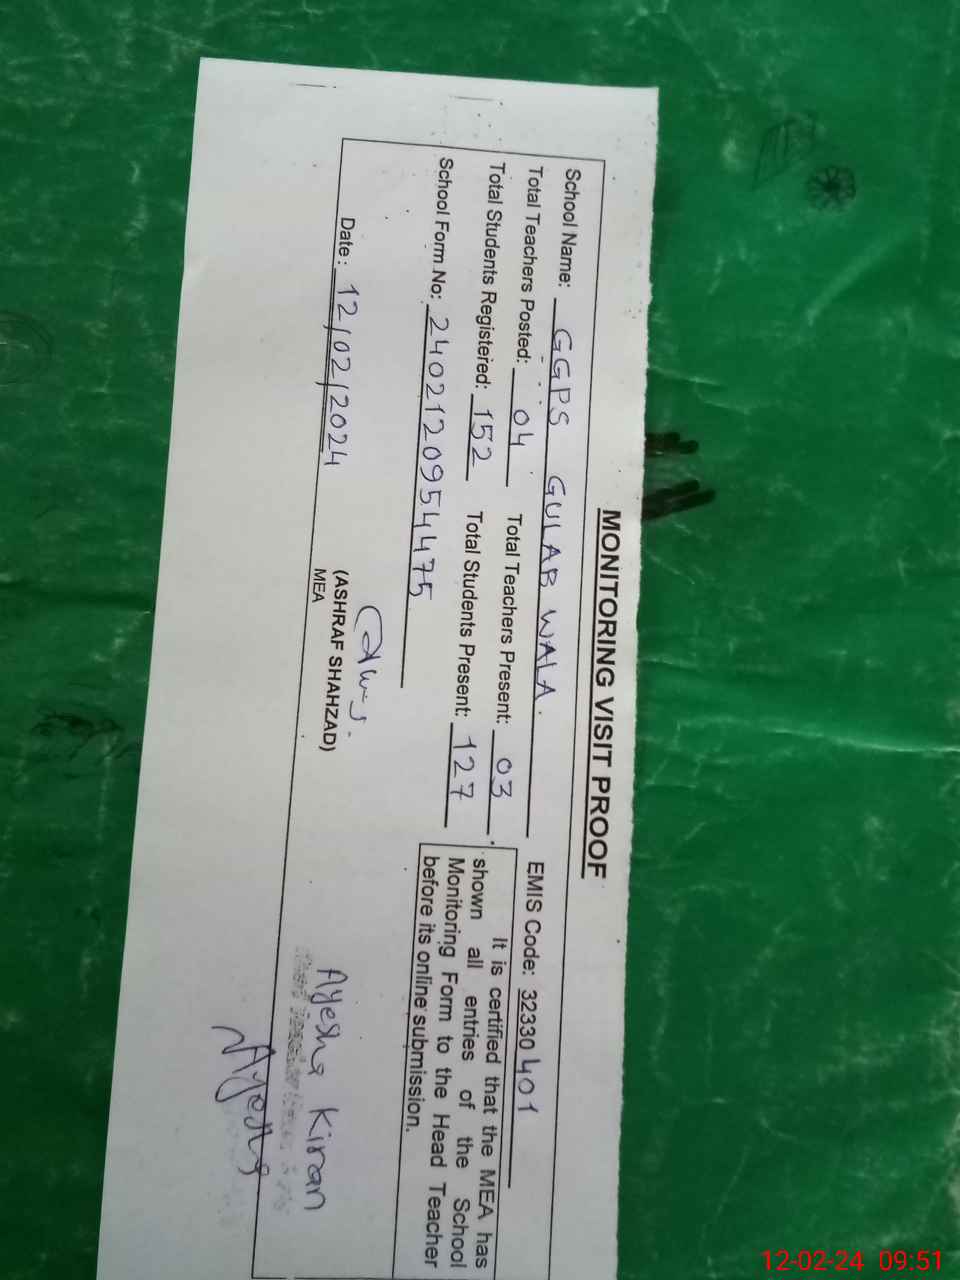 MONITORING VISIT PROOF
School Name: GGPS GULAB WALA. EMIS Code: 32330401
Total Teachers Posted: 04 Total Teachers Present: 03
Total Students Registered: 152 Total Students Present: 127
School Form No: 2402120954475
It is certified that the MEA has
shown all entries of the School
Monitoring Form to the Head Teacher
before its online submission.
Date: 12/02/2024
(ASHRAF SHAHZAD)
MEA
Ayesha Kiran
Ayesha
12-02-24 09:51